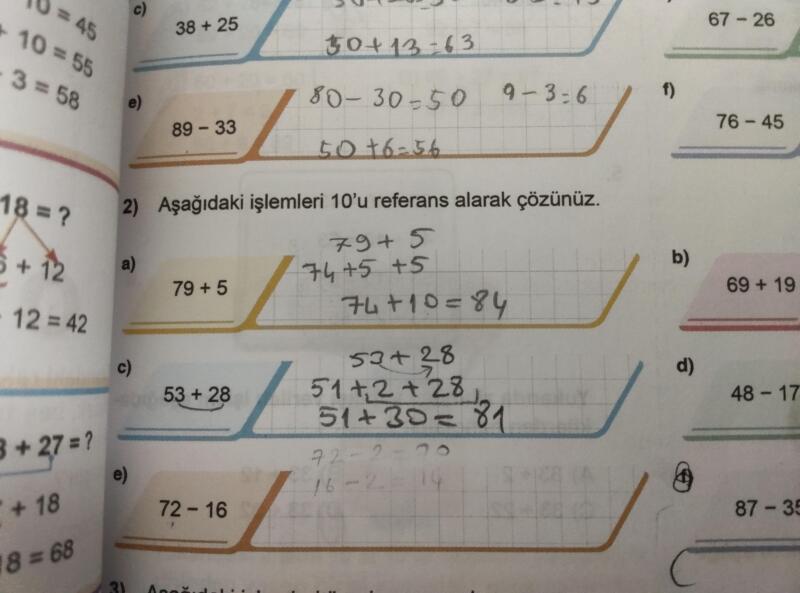 10 = 45
+ 10 = 55
3 = 58
18 = ?
+ 12
12 = 42
+ 27 = ?
+ 18
18 = 68
c)
38 + 25
50+13=63
67 − 26
e)
89 − 33
80 − 30 = 50 9 − 3 = 6
50 + 6 = 56
f)
76 − 45
2) Aşağıdaki işlemleri 10'u referans alarak çözünüz.
a)
79 + 5
79 + 5
74 + 5 + 5
74 + 10 = 84
b)
69 + 19
c)
53 + 28
53 + 28
51 + 2 + 28
51 + 30 = 81
d)
48 − 17
e)
72 − 16
72 − 2 =
16 − 2 = 14
f)
87 − 35
3)